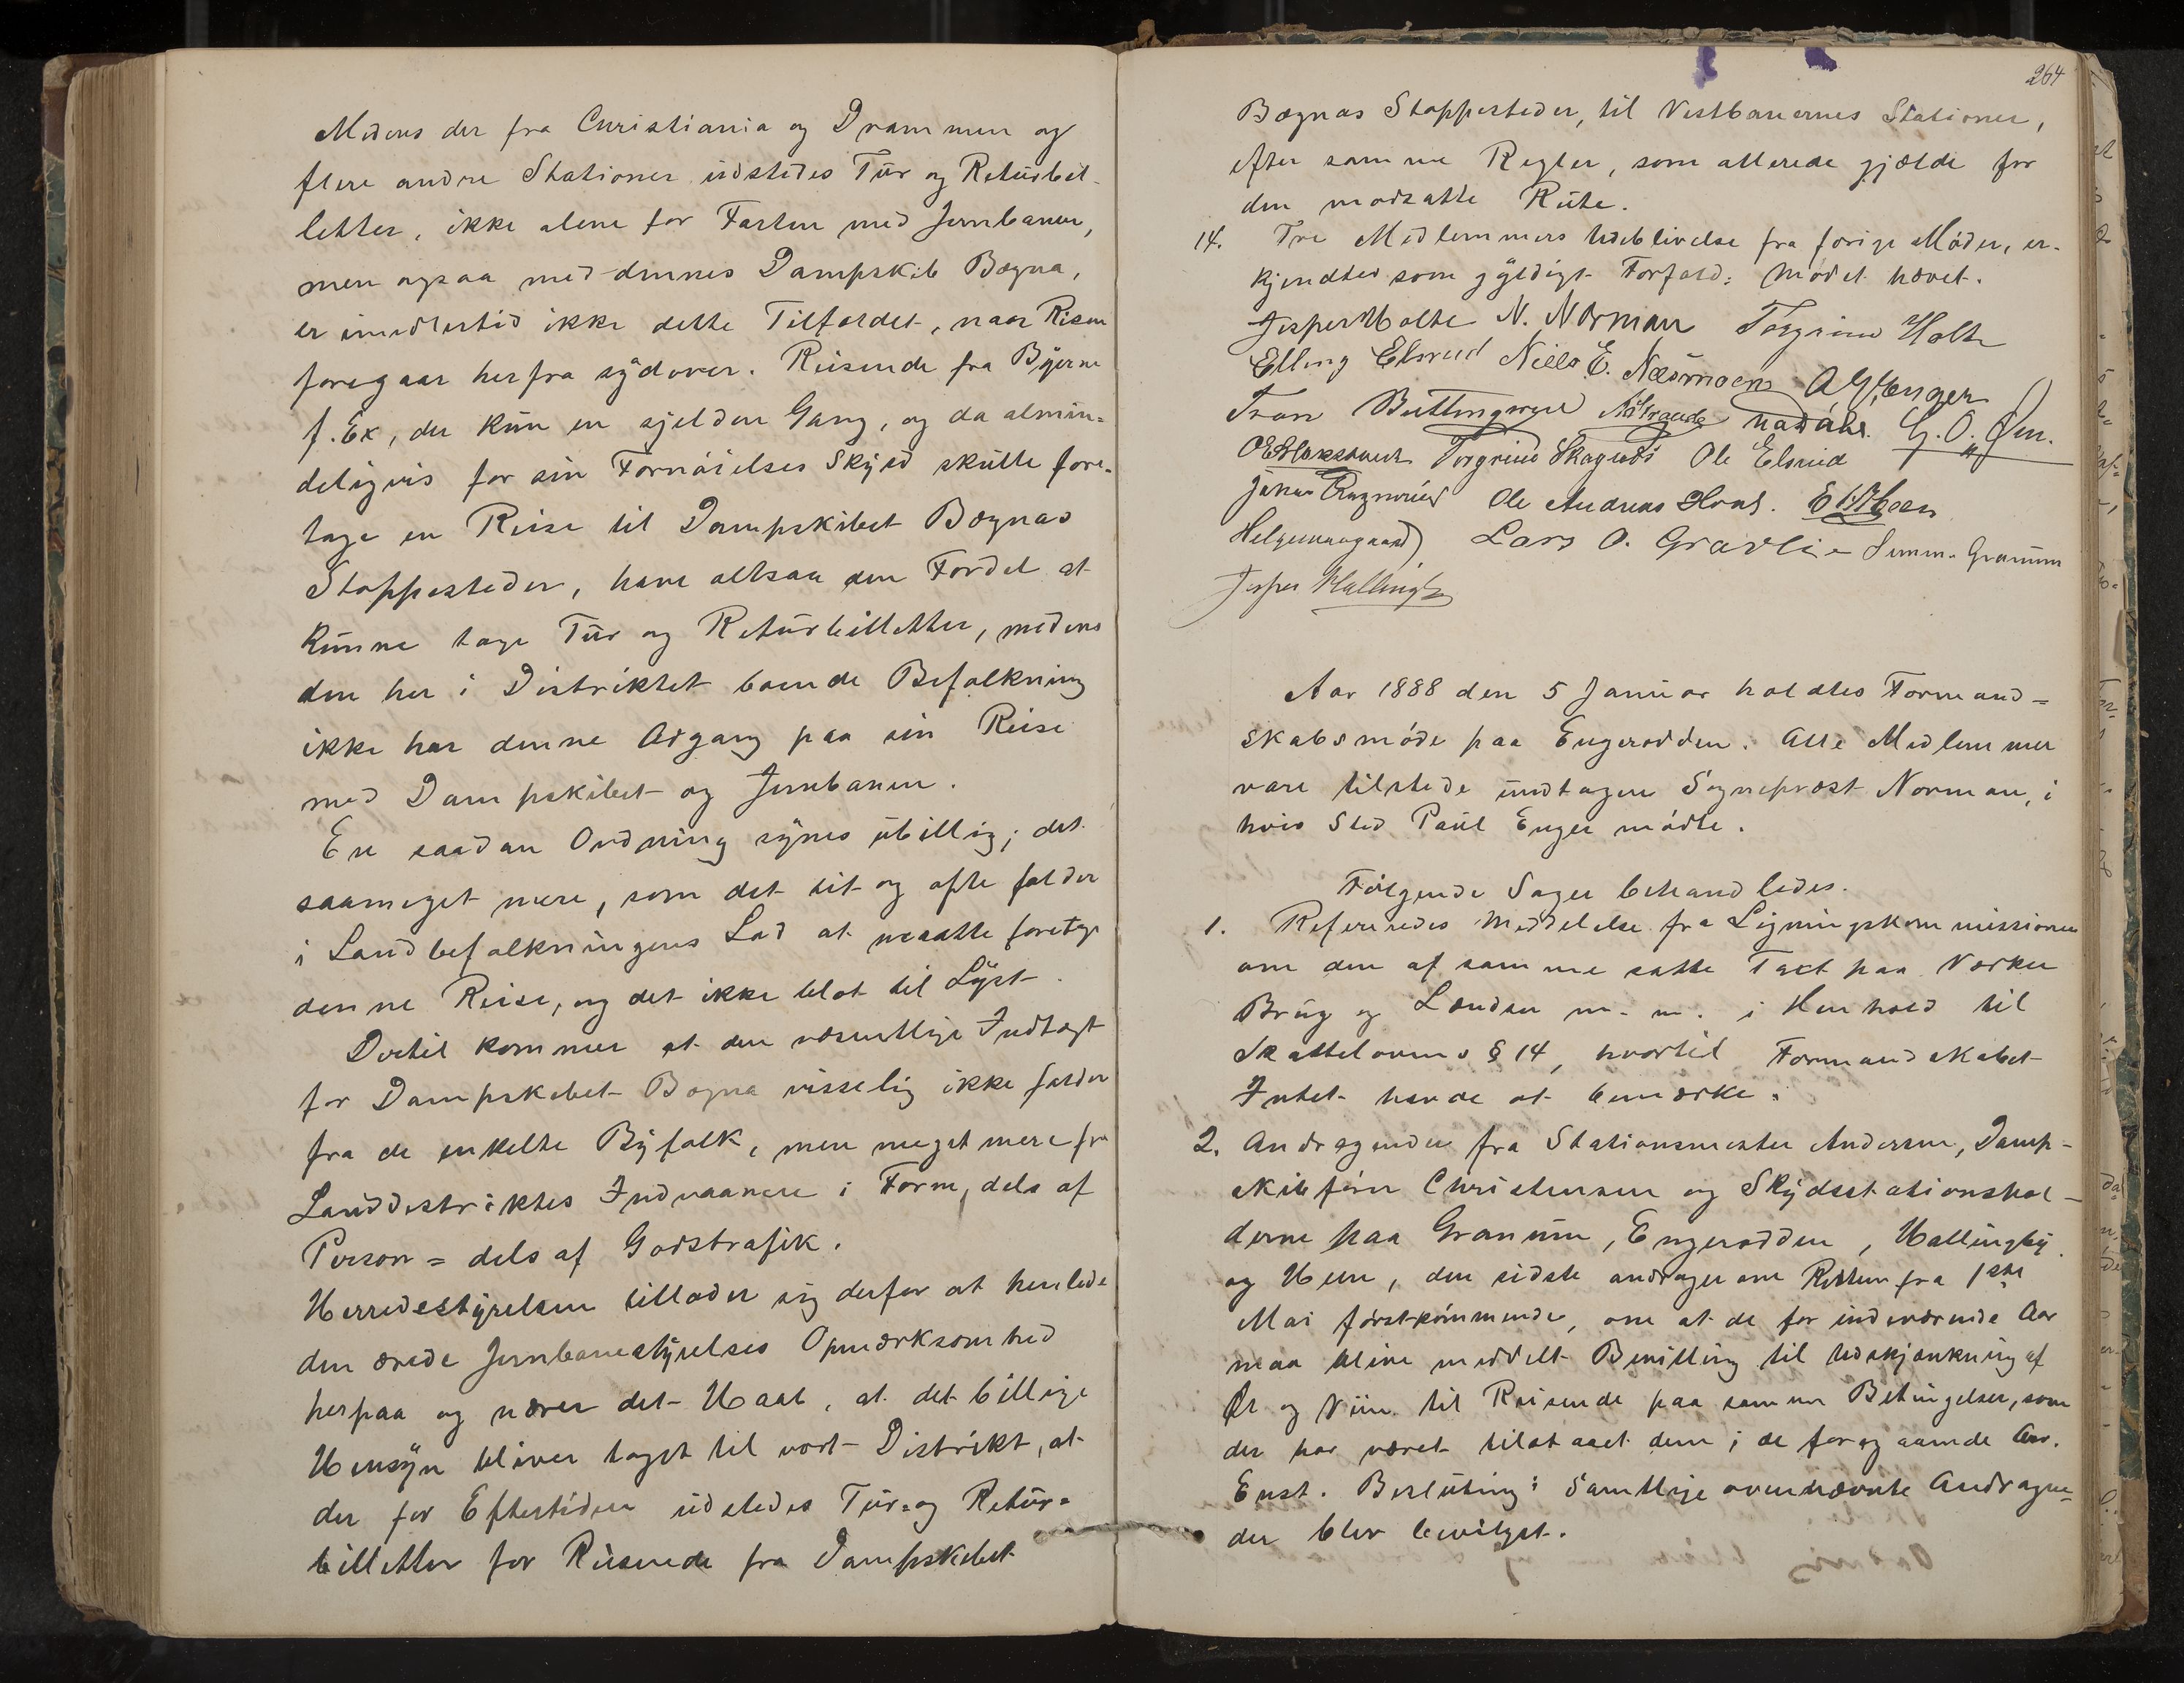 Medens der fra Christiania og Drammen og
flere andre Stationer udstedes Tur og Returbil-
letter, ikke alene for Farten med Jernbanen,
men ogsaa med dennes Dampskib Bægna,
er imidlertid ikke dette Tilfældet, naar Reisen
foregaar herfra sydover. Reisende fra Byerne
f. Ex, der kun en sjelden Gang, og da almin-
deligvis for sin Fornøielses Skyld skulle fore-
tage en Reise til Dampskibet Bægnas
Stoppesteder, have altsaa den Fordel at
kunne tage Tur og Returbilletter, medens
den her i Distriktet boende Befolkning
ikke har denne Adgang paa sin Reise
med Dampskibet og Jernbanen.
En saadan Ordning synes ubillig; det
saameget mere, som det tit og ofte falder
i Landbefolkningens Lod at maatte foretage
denne Reise, og det ikke blot til Lyst.
Dertil kommer at den væsentlige Indtægt
for Dampskibet Bægna visselig ikke falder
fra de enkelte Byfolk, men meget mere fra
Landdistriktets Indvaanere i Form, dels af
Person= dels af Godstrafik.
Herredestyrelsen tillader sig derfor at henlede
den ærede Jernbanestyrelses Opmærksomhed
herpaa og nærer det Haab, at det billige
Hensyn bliver taget til vort Distrikt, at
der for Eftertiden udstedes Tur= og Retur=
billetter for Reisende fra Dampskibet
264
Bægnas Stoppesteder, til Vestbanernes Stationer,
efter samme Regler, som allerede gjælde for
den modsatte Rute.
14. Tre Medlemmers Udeblivelse fra forige Møder, er-
kjendtes som gyldigt Forfald. Mødet hævet.
Jesper Holte N. Norman Torgrim Holte
Elling Elsrud Niels E. Næsmoen A G Enger
Tron Buttingsrud Nådahl. G. O. Øen.
Torgrim Skagnæs Ole Elsrud
Ole Andreas Hval. E H Heen
Helgemaagaard Lars O. Gravli Granum
Jesper Hallingby
Aar 1888 den 5 Januar holdtes Formand=
skabsmøde paa Engerodden. Alle Medlemmer
vare tilstede undtagen Sogneprest Norman, i
hvis Sted Paul Enger mødte.
Følgende Sager behandledes.
1. Refereredes Meddelelse fra Ligningskommissionen
om den af samme satte Taxt paa Værker
Brug og Lændser m. m. i Henhold til
Skattelovens § 14, hvortil Formandskabet
Intet havde at bemærke.
2. Andragender fra Stationsmester Andersen, Damp-
skibsfører Christensen og Skydsstationshol-
derne paa Granum, Engerodden, Hallingby
og Heen, den sidste andrager om Retten fra 1ste
Mai førstkommende, om at de for indeværende Aar
maa blive meddelt Bevilling til Udskjænkning af
Øl og Viin til Reisende paa samme Betingelser, som
der har været tilstaaet dem i de foregaaende Aar.
Enst. Beslutning: Samtlige ovennævnte Andragen=
der blev bevilget.